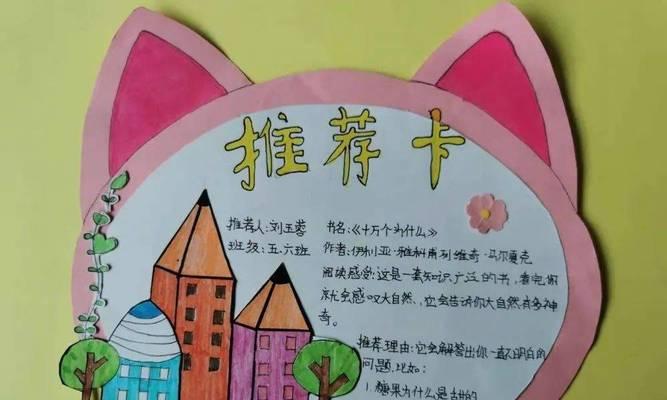 推荐卡
推荐人:刘玉蓉
班级:五.六班
书名:《十万个为什么》
作者:伊利亚·雅科甫列维奇·马尔夏克
阅读感受:这是一套知识广泛的书,看完你
就会感叹大自然,它会告诉你大自然有多神
奇。
推荐理由:它会解答出你一直不明白的
问题,比如:
1.糖果为什么是甜的